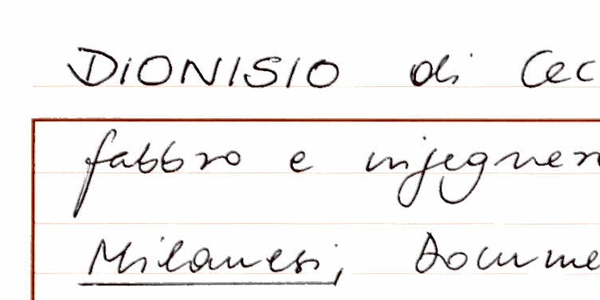 DIONISIO di Cec
fabbro e ingegner
Milanesi, Docume